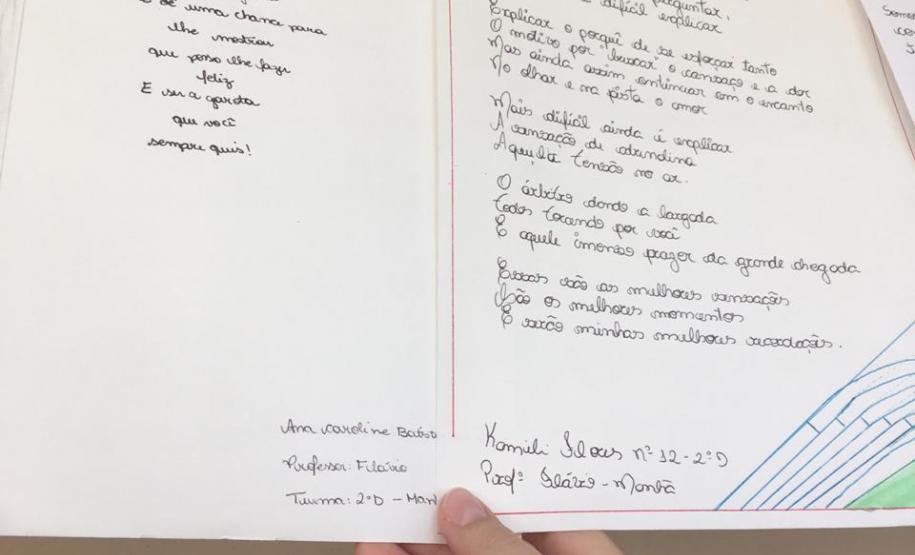 dê uma chance para
lhe mostrar
que posso lhe fazer
feliz
E ser a garota
que você
sempre quis!
Ana Caroline
Professor: Flávio
Turma: 2ºD -
perguntar,
difícil explicar
Explicar o porquê de se esforçar tanto
O motivo por "buscar" o cansaço e a dor
Mas ainda assim continuar com o encanto
No olhar e na pista o amor
Mais difícil ainda é explicar
A sensação de adrenalina
Aquela tensão no ar.
O árbitro dando a largada
todos torcendo por você
E aquele imenso prazer da grande chegada
Essas são as melhores sensações
São os melhores momentos
E serão minhas melhores recordações.
Kamili nº 12 - 2ºD
Profº Flávio - Manhã